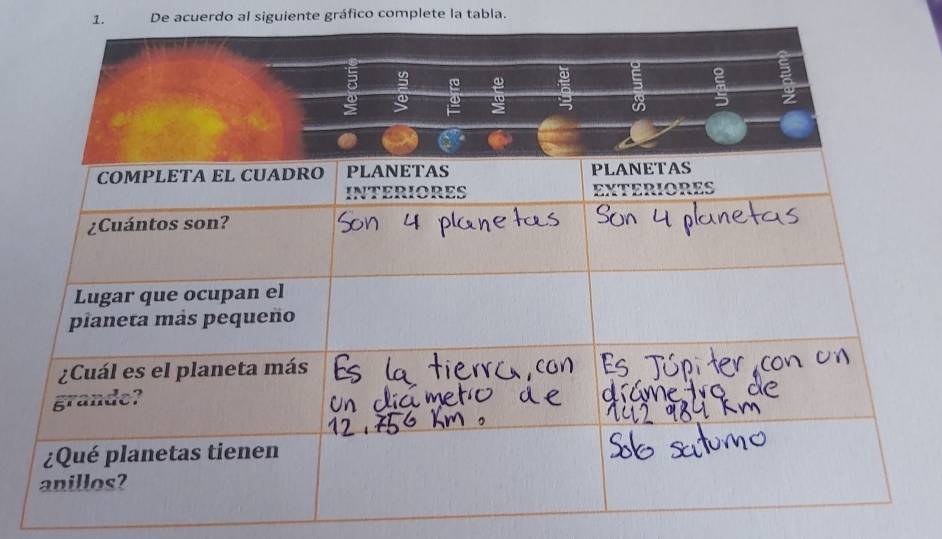 1. De acuerdo al siguiente gráfico complete la tabla.
Mercurio Venus Tierra Marte Júpiter Saturno Urano Neptuno
COMPLETA EL CUADRO PLANETAS INTERIORES PLANETAS EXTERIORES
¿Cuántos son? Son 4 planetas Son 4 planetas
Lugar que ocupan el
planeta más pequeño
¿Cuál es el planeta más Es la tierra, con Es Júpiter, con un
grande? un diámetro de diámetro de
12.756 Km. 142 984 Km
¿Qué planetas tienen Solo saturno
anillos?